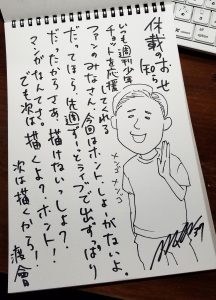 休載のお知らせ
いつも週刊少年
チョメトを応援してくれる
ファンのみなさん、今回はホント、しょーがないよ。
だってほら、先週ずーっとラブで出ずっぱり
だったからさあ、描けないっしょ？
マンガなんてさ。
でも次は、描くよ？ホント！
次は描くから！